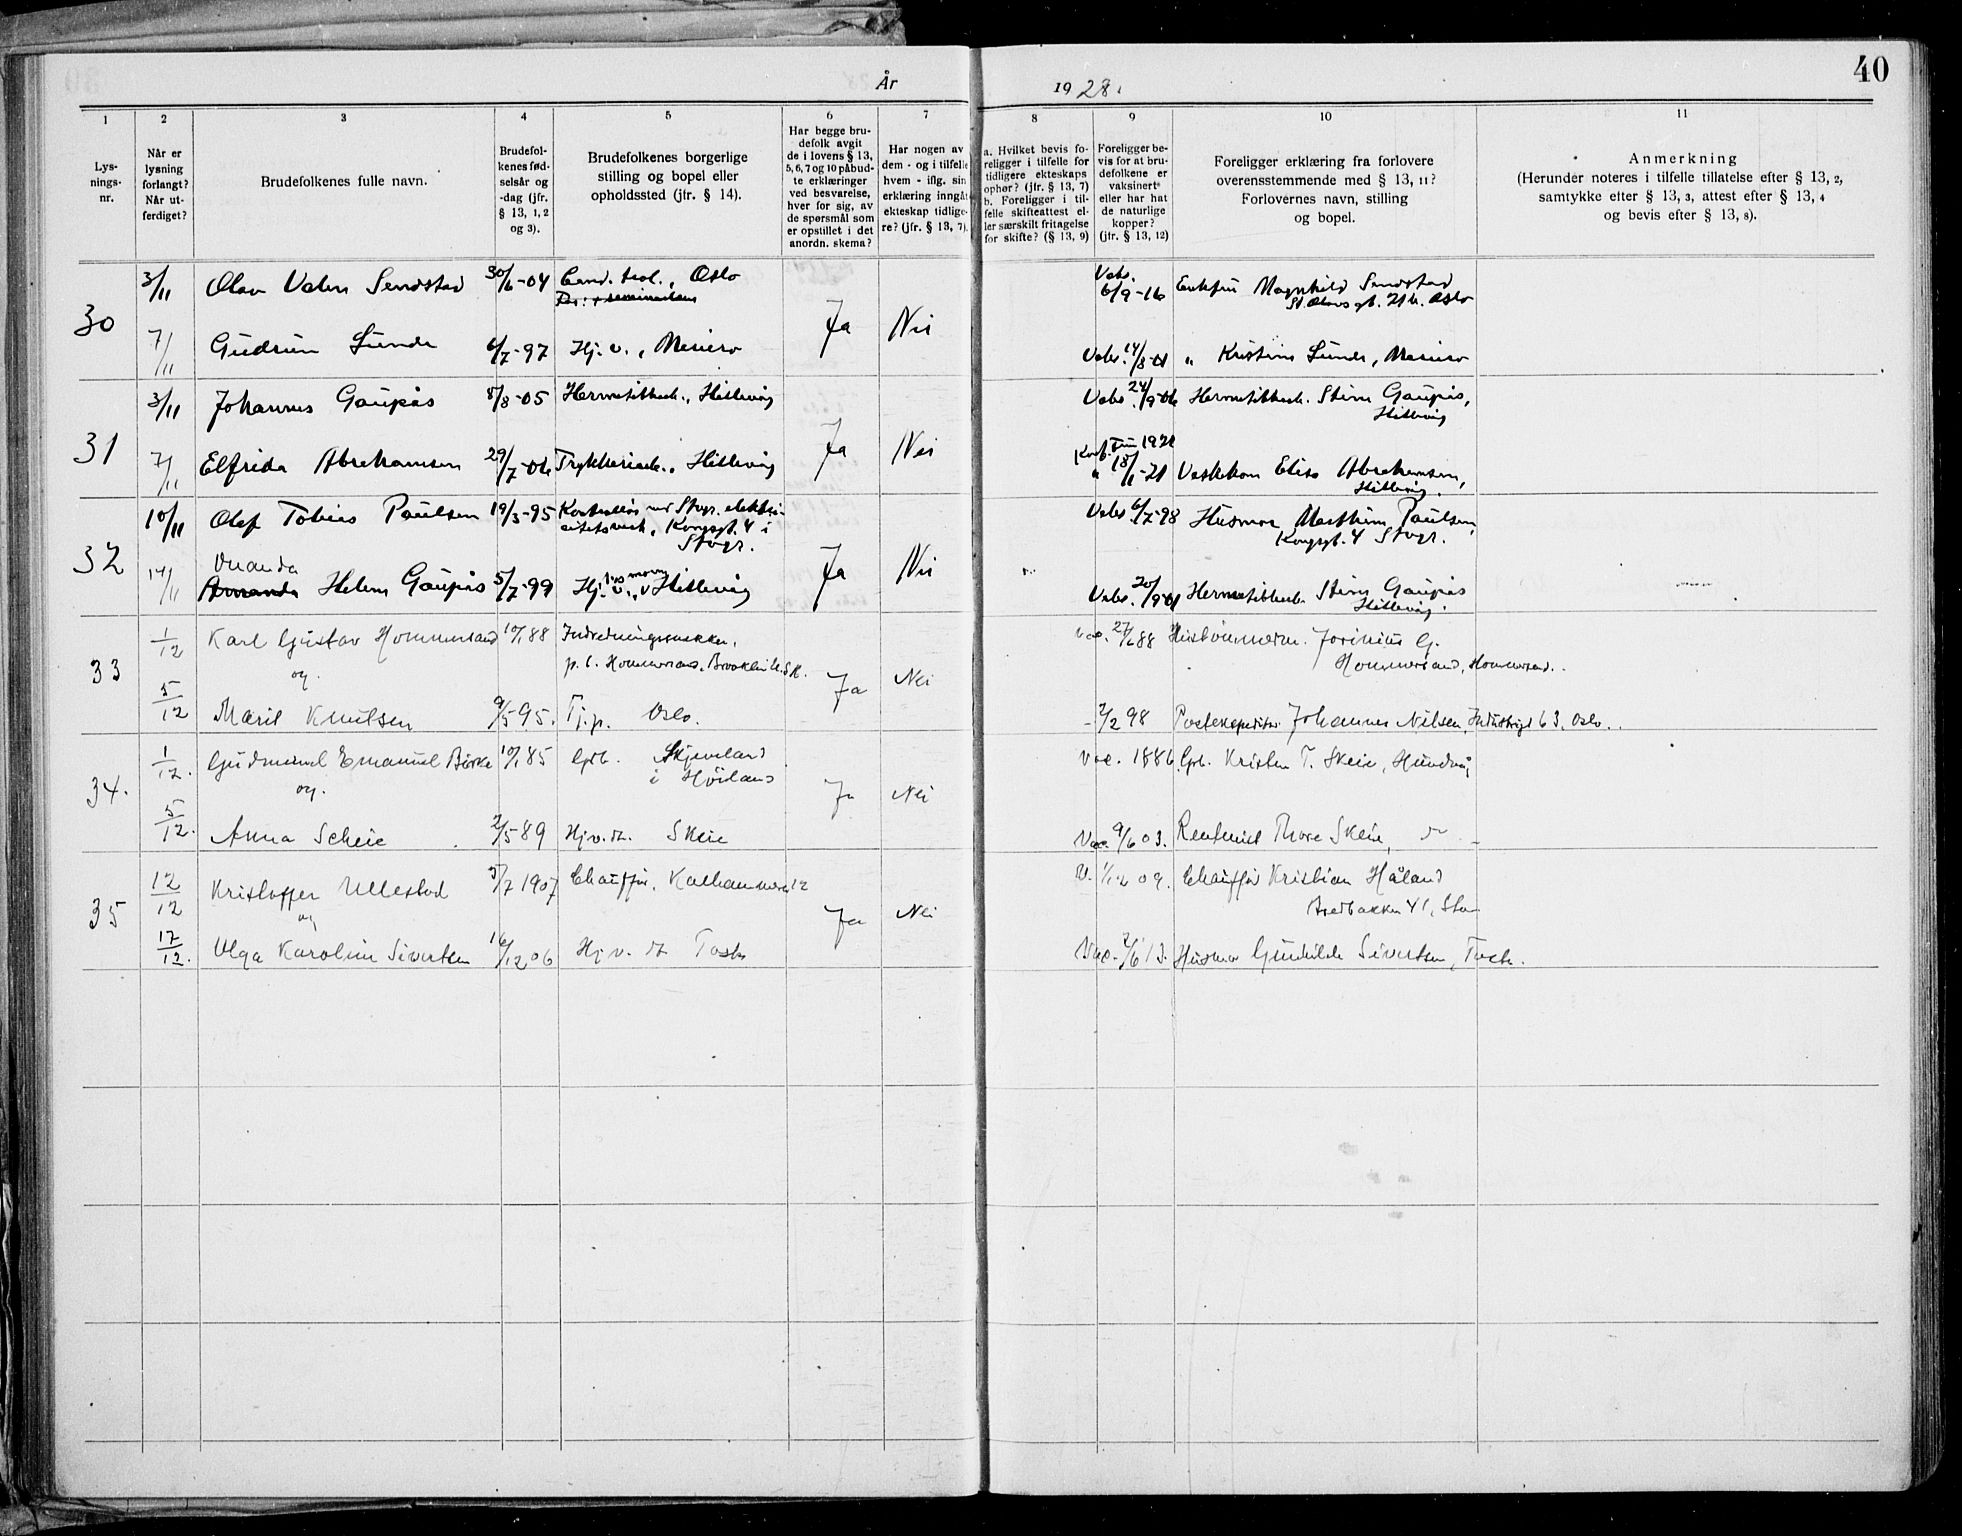 40
År 1928.
1
2
3
4
5
6
7
8
9
10
11
Lys-
nings-
nr.
Når er
lysning
forlangt?
Når ut-
ferdiget?
Brudefolkenes fulle navn.
Brudefol-
kenes fød-
selsår og
-dag (jfr.
§ 13, 1, 2
og 3).
Brudefolkenes borgerlige
stilling og bopel eller
opholdssted (jfr. § 14).
Har begge bru-
defolk avgit
de i lovens § 13,
5, 6, 7 og 10 påbud-
te erklæringer
ved besvarelse,
hver for sig, av
de spørsmål som
er opstillet i det
anordn. skema?
Har nogen av
dem - og i tilfelle
hvem - iflg. sin
erklæring inngåt
ekteskap tidlige-
re? (jfr. § 13, 7).
a. Hvilket bevis fo-
religger i tilfelle for
tidligere ekteskaps
ophør? (jfr. § 13, 7)
b. Foreligger i til-
felle skifteattest el-
ler særskilt fritagelse
for skifte? (§ 13, 9)
Foreligger be-
vis for at bru-
defolkene er
vaksinert
eller har hat
de naturlige
kopper?
(jfr. § 13, 12)
Foreligger erklæring fra forlovere
overensstemmende med § 13, 11?
Forlovernes navn, stilling
og bopel.
Anmerkning
(Herunder noteres i tilfelle tillatelse efter § 13, 2,
samtykke efter § 13, 3, attest efter § 13, 4
og bevis efter § 13, 8).
30
3/11 Olav Valen Sendstad 30/6-04 Cand. teol., Oslo
Ja Nei
Vaks. 6/9-16 Enkefru Magnhild Sendstad
St. Olavs gt. 21 b. Oslo
7/11 Gudrun Sunde 6/7-97 Hj. v., Mariero
Vaks. 14/8-01 " Kristine Sunde, Mariero
31
3/11 Johannes Gaupås 8/8-05 Hermetikkarb., Hillevåg
Ja Nei
Vaks. 24/9-06 Hermetikkarb. Stine Gaupås,
Hillevåg
7/11 Elfrida Abrahamsen 29/7-06 Trykkeriarb., Hillevåg
Konf. 1921
" 18/1-21 Vaskekone Elise Abrahamsen,
Hillevåg.
32
10/11 Olaf Tobias Paulsen 19/3-95 Kontrollør ved Stvgr. elektri-
citetsverk, Kongsgt. 4 i
Stvgr.
Ja Nei
Vaks. 6/7-98 Husmor Marthine Paulsen,
Kongsgt. 4 Stvgr.
14/11 Onanda
Amanda Helene Gaupås 5/7-99 Hj. v., Hillevåg
Vaks. 20/9-01 Hermetikkarb. Stine Gaupås
Hillevåg.
33
1/12 Karl Gustav Hommersand 10/1 88 Indredningssnekker,
p. t. Hommersand, Brooklin U.S.A.
og.
Ja Nei
Vac. 27/6 88 Jorinius G.
Hommersand, Hommersand.
5/12 Marit Knutsen 9/5 95. Tj.p. Oslo.
- 2/2 98 Postekspeditør Johannes Nilsen, Industrigt 63, Oslo.
34.
1/12. Gudmund Emanuel Birke 10/1 85 Grb. Skjeveland
i Høiland
og.
Ja Nei
Vac. 1886 Grb. Kristen T. Skeie, Hundvåg
5/12. Anna Scheie 2/5 89 Hj.v.dt. Skeie
Vac. 9/6 03. Rentenist Thore Skeie,
35
12/12 Kristoffer Ullestad 3/7 1907 Chauffør, Kolhammaren 12
og
Ja Nei
V. 1/12 09. Chauffør Kristian Håland
Aredbakken 41, Stav.
17/12. Olga Karoline Sivertsen 16/12 06 Hj v. dt Tasta
Vac. 2/6 13. Husmor Gunhilde Sivertsen, Tasta.